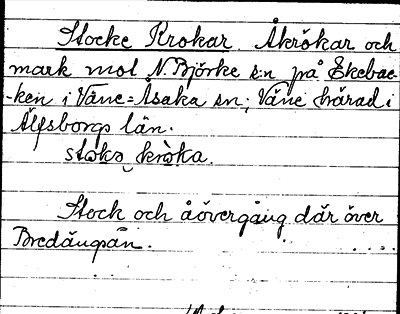 Stocke Krokar. Åkrökar och
mark mot N. Björke sn på Ekebac-
-ken i Väne-Åsaka sn; Väne härad i
Älfsborgs län.
stɵkə krɵ̀ka.
Stock och åövergång där över
Bredängsån.